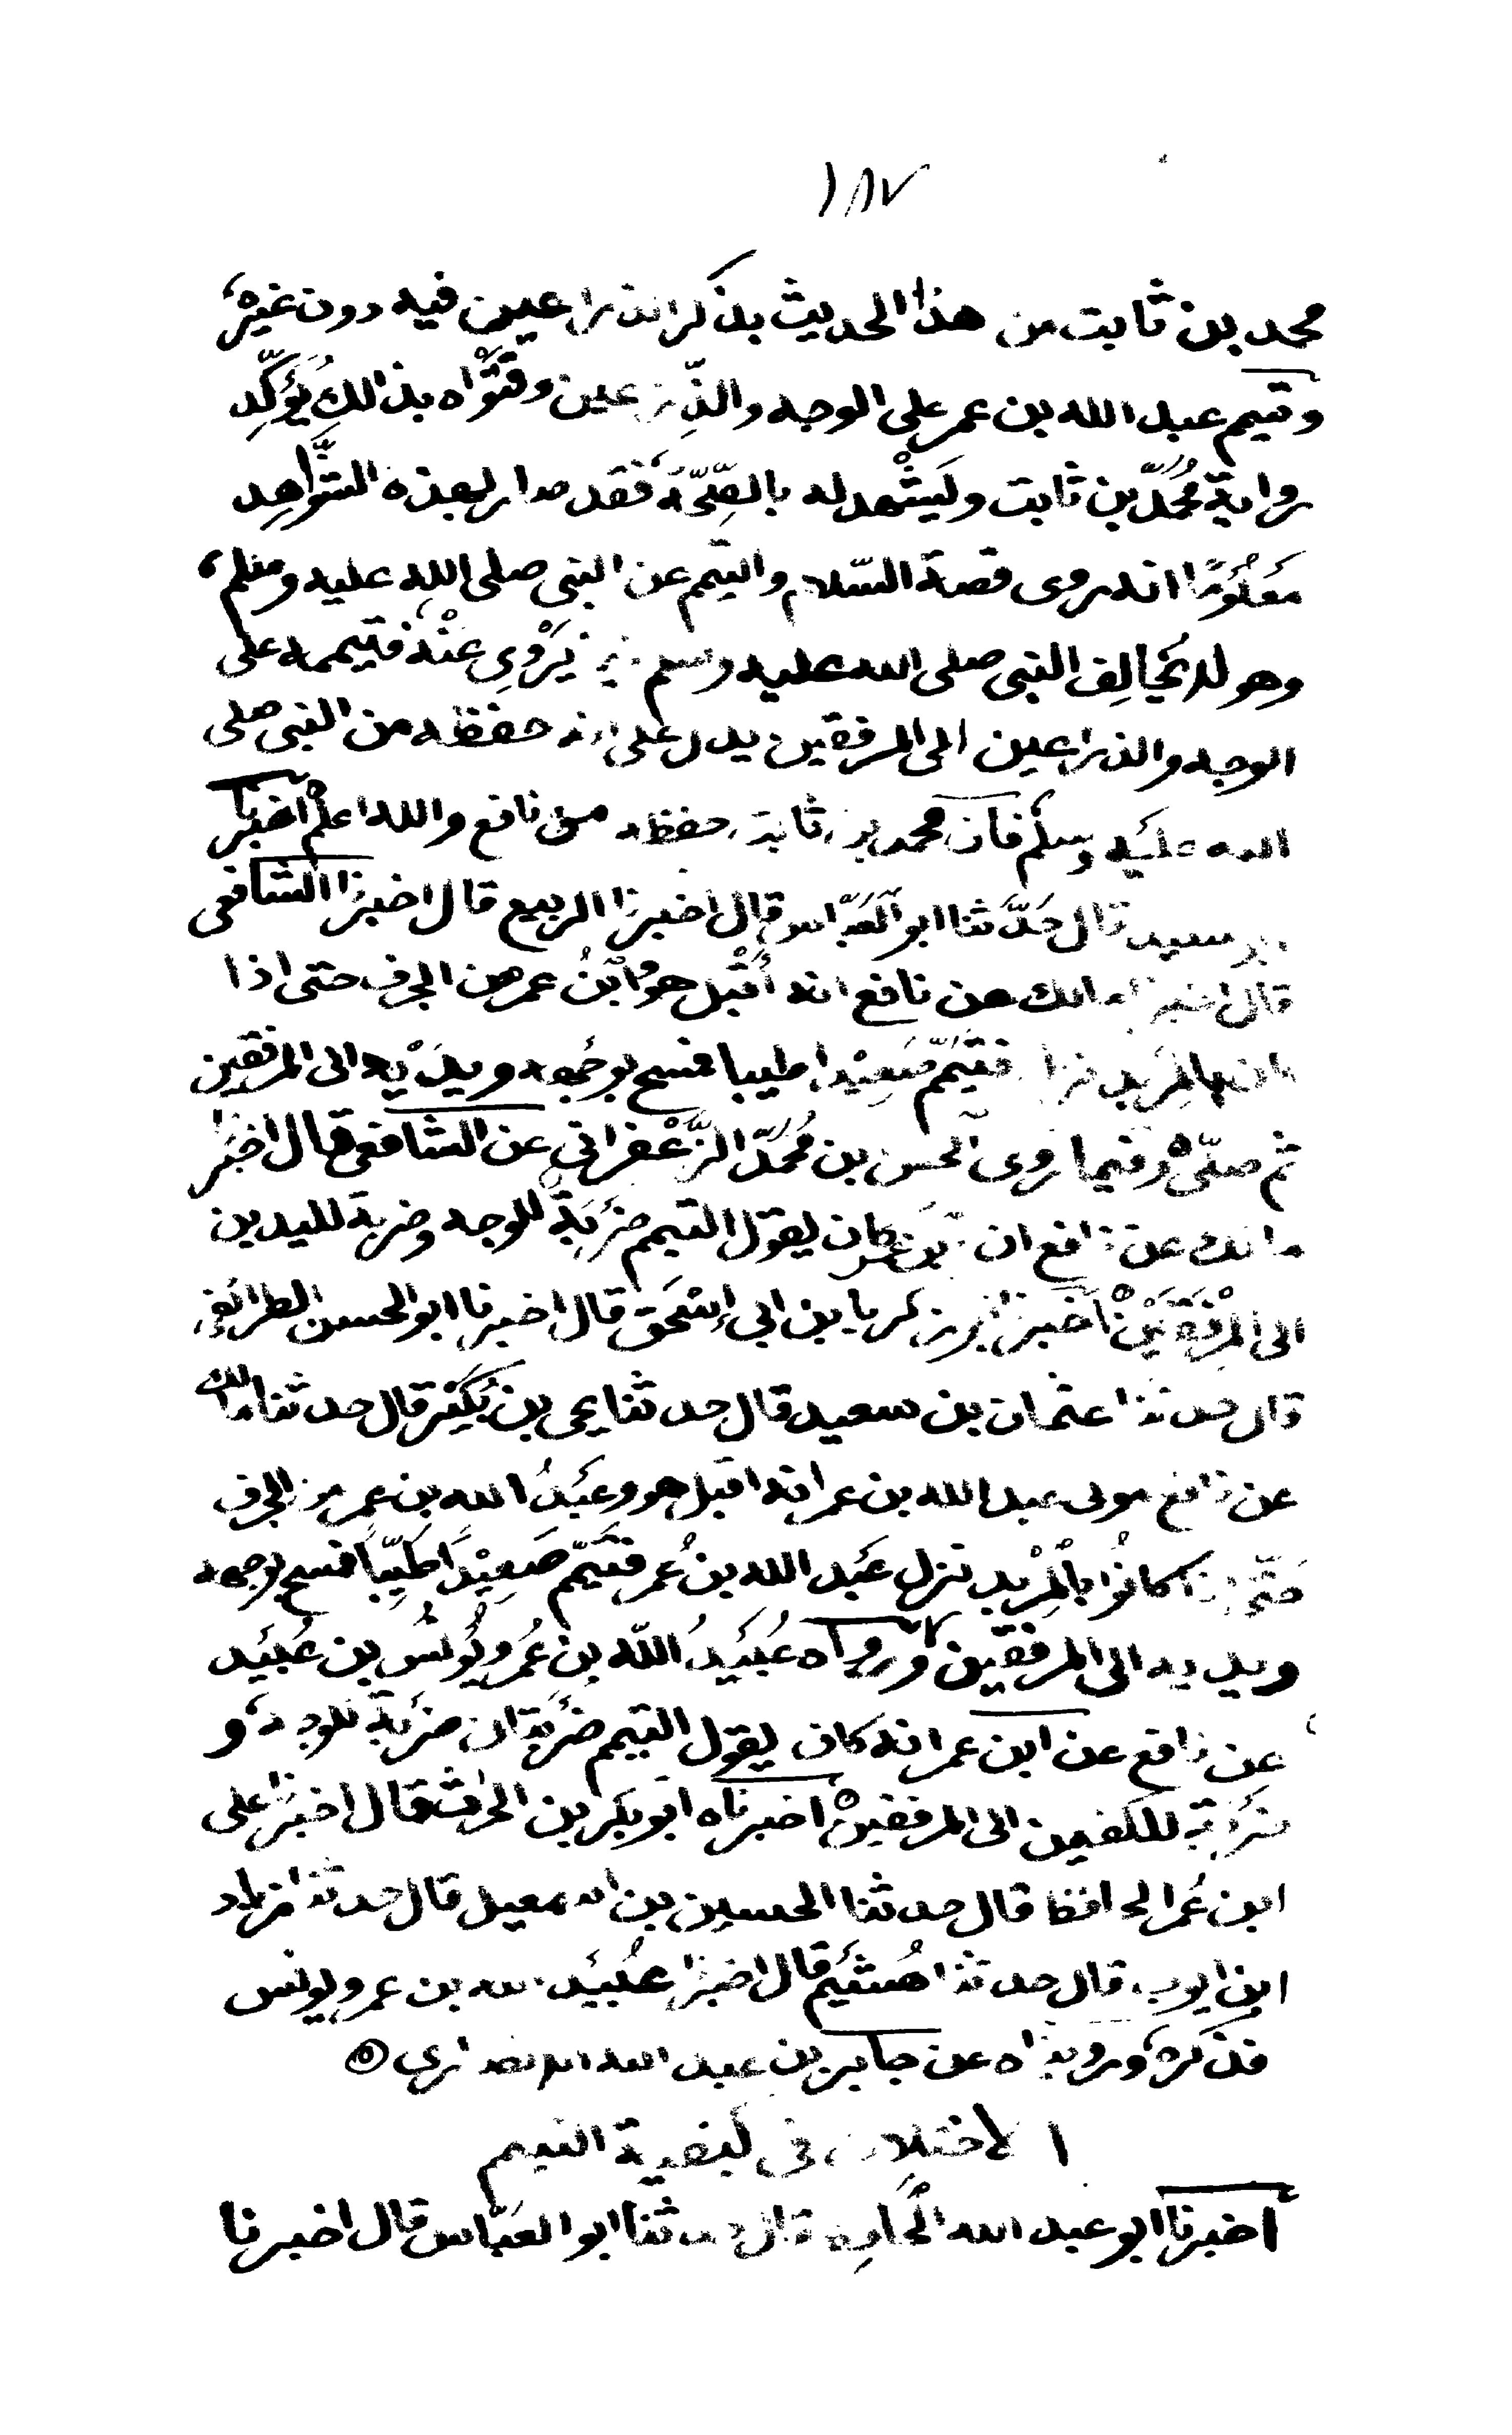 ١٨٧
محمد بن ثابت من هذا الحديث بذكر الذراعين فيه دون غيره
وتيمم عبد الله بن عمر على الوجه والذراعين وفتواه بذلك يُؤكِّد
رواية مُحمَّد بن ثابت ويَشْهد له بالصِّحَّة فقد صار بهذه الشَّواهِد
مَعلُومًا انه روى قصة السّلام والتيمم عن النبى صلى الله عليه وسلم
وهو لا يُخالِف النبى صلى الله عليه وسلم يَرْوِى عَنْهُ فتيممه على
الوجه والذراعين الى المرفقين يدل على انه حفظه من النبى صلى
الله عليه وسلم فان محمد بن ثابت حفظه من نافع والله اعلم اخبرنا
ابو سعيد قال حَدَّثنا ابو العَبَّاس قال اخبرنا الربيع قال اخبرنا الشافعى
قال اخبرنا مالك عن نافع انه أَقْبل هو وابْنُ عمر من الجرف حتى اذا
كان بالمِرْبد نزل فتيَمَّم صَعِيْدا طيبا فمسح بوَجْهه ويدَيْه الى المرفقين
ثم صلّى وفيما روى الحسن بن مُحمَّد الزَّعْفرانى عن الشافعى قال اخبرنا
مالك عن نافع ان عمر كان يقول التيمم ضَرْبَةٌ للوجه وضربة لليدين
الى المِرْفَقَيْن اخبرنا ابو زكريا بن ابى إِسْحَق قال اخبرنا ابو الحسن الطرائفى
قال حدثنا عثمان بن سعيد قال حدثنا يحى بن بُكَيْر قال حدثنا مالك
عن نافع مولى عبد الله بن عمر انه اقبل هو وعَبْدُ الله بن عمر من الجرف
حَتّى اذا كانُوا بِالْمِرْبد نزل عَبْد الله بن عُمر فتَيَمَّم صَعِيْدًا طَيِّبًا فمسح بوجهه
ويديه الى المرفقين ورواه عُبَيْدُ اللّه بن عُمَر ويُونُسُ بن عُبَيْد
عن نافع عن ابن عمر انه كان يقول التيمم ضَرْبَتان ضَرْبة للوجه و
ضَرْبة للكفين الى المرفقين اخبرناه ابو بكر بن الحرث قال اخبرنا على
ابن عُمر الحافظ قال حدثنا الحسين بن اسمعيل قال حدثنا زياد
ابن ايوب قال حدثنا هُشَيْم قال اخبرنا عُبَيْد الله بن عمر ويونس
فذكره ورويناه عن جابر بن عبد الله الانصارى
الاختلاف فى كيفية التيمم
اخبرنا ابو عبد الله الحَافِظ قال حدثنا ابو العَبَّاس قال اخبرنا